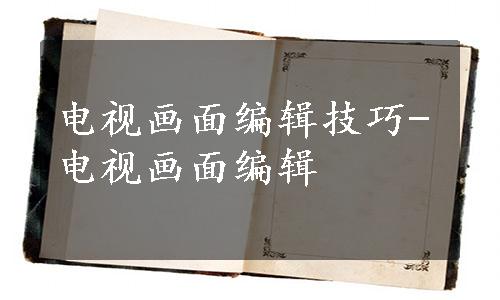 电视画面编辑技巧-
电视画面编辑